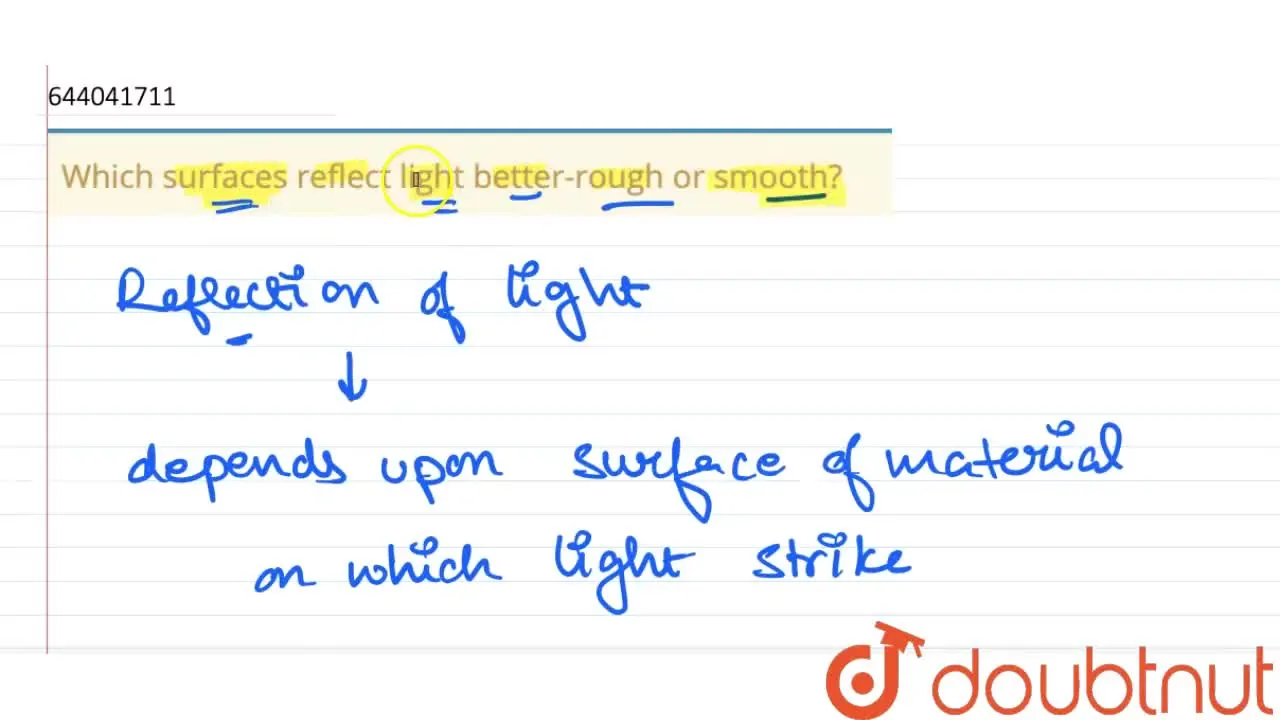 644041711
Which surfaces reflect light better-rough or smooth?
Reflection of light
depends upon surface of material
on which light strike
doubtnut